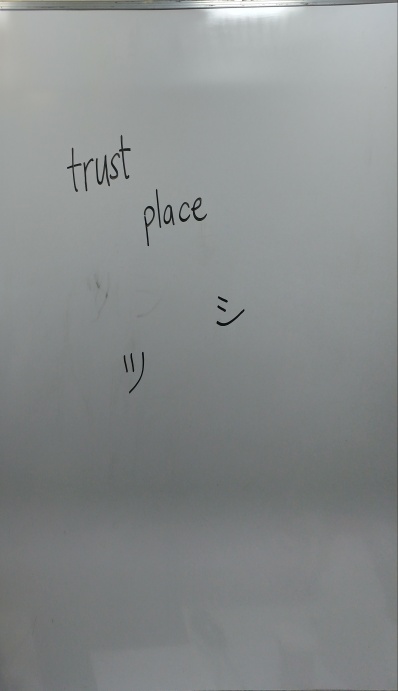 trust
place
シ
ツ